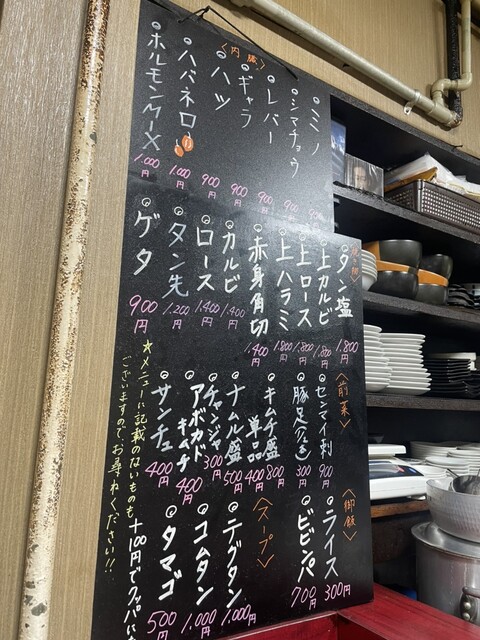 〈内臓〉
ミノ
シマチョウ 900円
レバー 900円
ギャラ 900円
ハツ 900円
ハバネロ 1,000円
ホルモン 1,000円
タン塩 1,800円
上カルビ 1,800円
上ロース 1,800円
上ハラミ 1,800円
赤身角切 1,400円
カルビ 1,400円
ロース 1,400円
タン先 1,200円
ゲタ 900円
〈前菜〉
センマイ刺 900円
豚足 300円
キムチ盛 800円
単品 400円
ナムル盛 500円
チャンジャ 300円
アボカドキムチ 400円
サンチュ 400円
〈御飯〉
ライス 300円
ビビンバ 700円
〈スープ〉
テグタン 1,000円
コムタン 1,000円
タマゴ 500円
+100円でクッパに
★メニューに記載のないものも
ございますので、お尋ねください!!